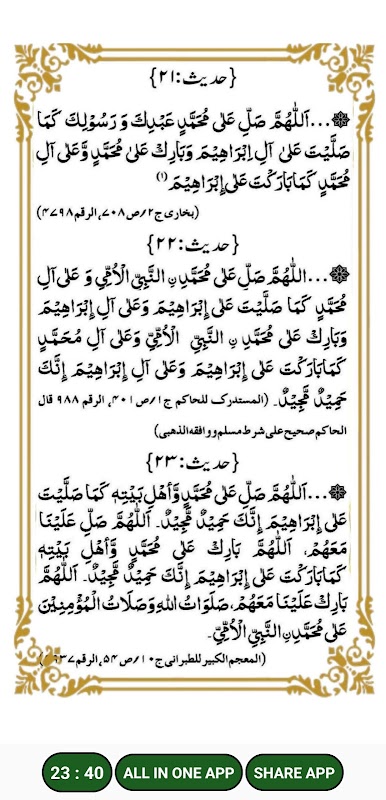 {حدیث:۲۱}
...اَللّٰهُمَّ صَلِّ عَلٰى مُحَمَّدٍ عَبْدِكَ وَ رَسُوْلِكَ كَمَا
صَلَّيْتَ عَلٰى آلِ اِبْرَاهِيْمَ وَبَارِكْ عَلٰى مُحَمَّدٍ وَّعَلٰى آلِ
مُحَمَّدٍ كَمَا بَارَكْتَ عَلٰى إِبْرَاهِيْمَ (۱)
(بخاری ج۲/ص۷۰۸، الرقم۴۷۹۸)
{حدیث:۲۲}
...اللّٰهُمَّ صَلِّ عَلٰى مُحَمَّدِ ِۨ النَّبِيِّ الْاُمِّيِّ وَ عَلٰى آلِ
مُحَمَّدٍ كَمَا صَلَّيْتَ عَلٰى إِبْرَاهِيْمَ وَعَلٰى آلِ إِبْرَاهِيْمَ
وَبَارِكْ عَلٰى مُحَمَّدِ ِۨ النَّبِيِّ الْاُمِّيِّ وَعَلٰى آلِ مُحَمَّدٍ
كَمَا بَارَكْتَ عَلٰى إِبْرَاهِيْمَ وَعَلٰى آلِ إِبْرَاهِيْمَ إِنَّكَ
حَمِيْدٌ مَّجِيْدٌ۔ (المستدرک للحاکم ج۱/ص۴۰۱، الرقم ۹۸۸ قال
الحاکم صحیح علی شرط مسلم ووافقه الذهبی)
{حدیث:۲۳}
...اَللّٰهُمَّ صَلِّ عَلٰى مُحَمَّدٍ وَّأَهْلِ بَيْتِهٖ كَمَا صَلَّيْتَ
عَلٰى إِبْرَاهِيْمَ إِنَّكَ حَمِيْدٌ مَّجِيْدٌ۔ اَللّٰهُمَّ صَلِّ عَلَيْنَا
مَعَهُمْ، اَللّٰهُمَّ بَارِكْ عَلٰى مُحَمَّدٍ وَّأَهْلِ بَيْتِهٖ
كَمَا بَارَكْتَ عَلٰى إِبْرَاهِيْمَ إِنَّكَ حَمِيْدٌ مَّجِيْدٌ۔ اَللّٰهُمَّ
بَارِكْ عَلَيْنَا مَعَهُمْ، صَلَوَاتُ اللهِ وَصَلَاتُ الْمُؤْمِنِيْنَ
عَلٰى مُحَمَّدِ ِۨ النَّبِيِّ الْاُمِّيِّ۔
(المعجم الکبیر للطبرانی ج۱۰/ص۵۴، الرقم
23 : 40
ALL IN ONE APP
SHARE APP